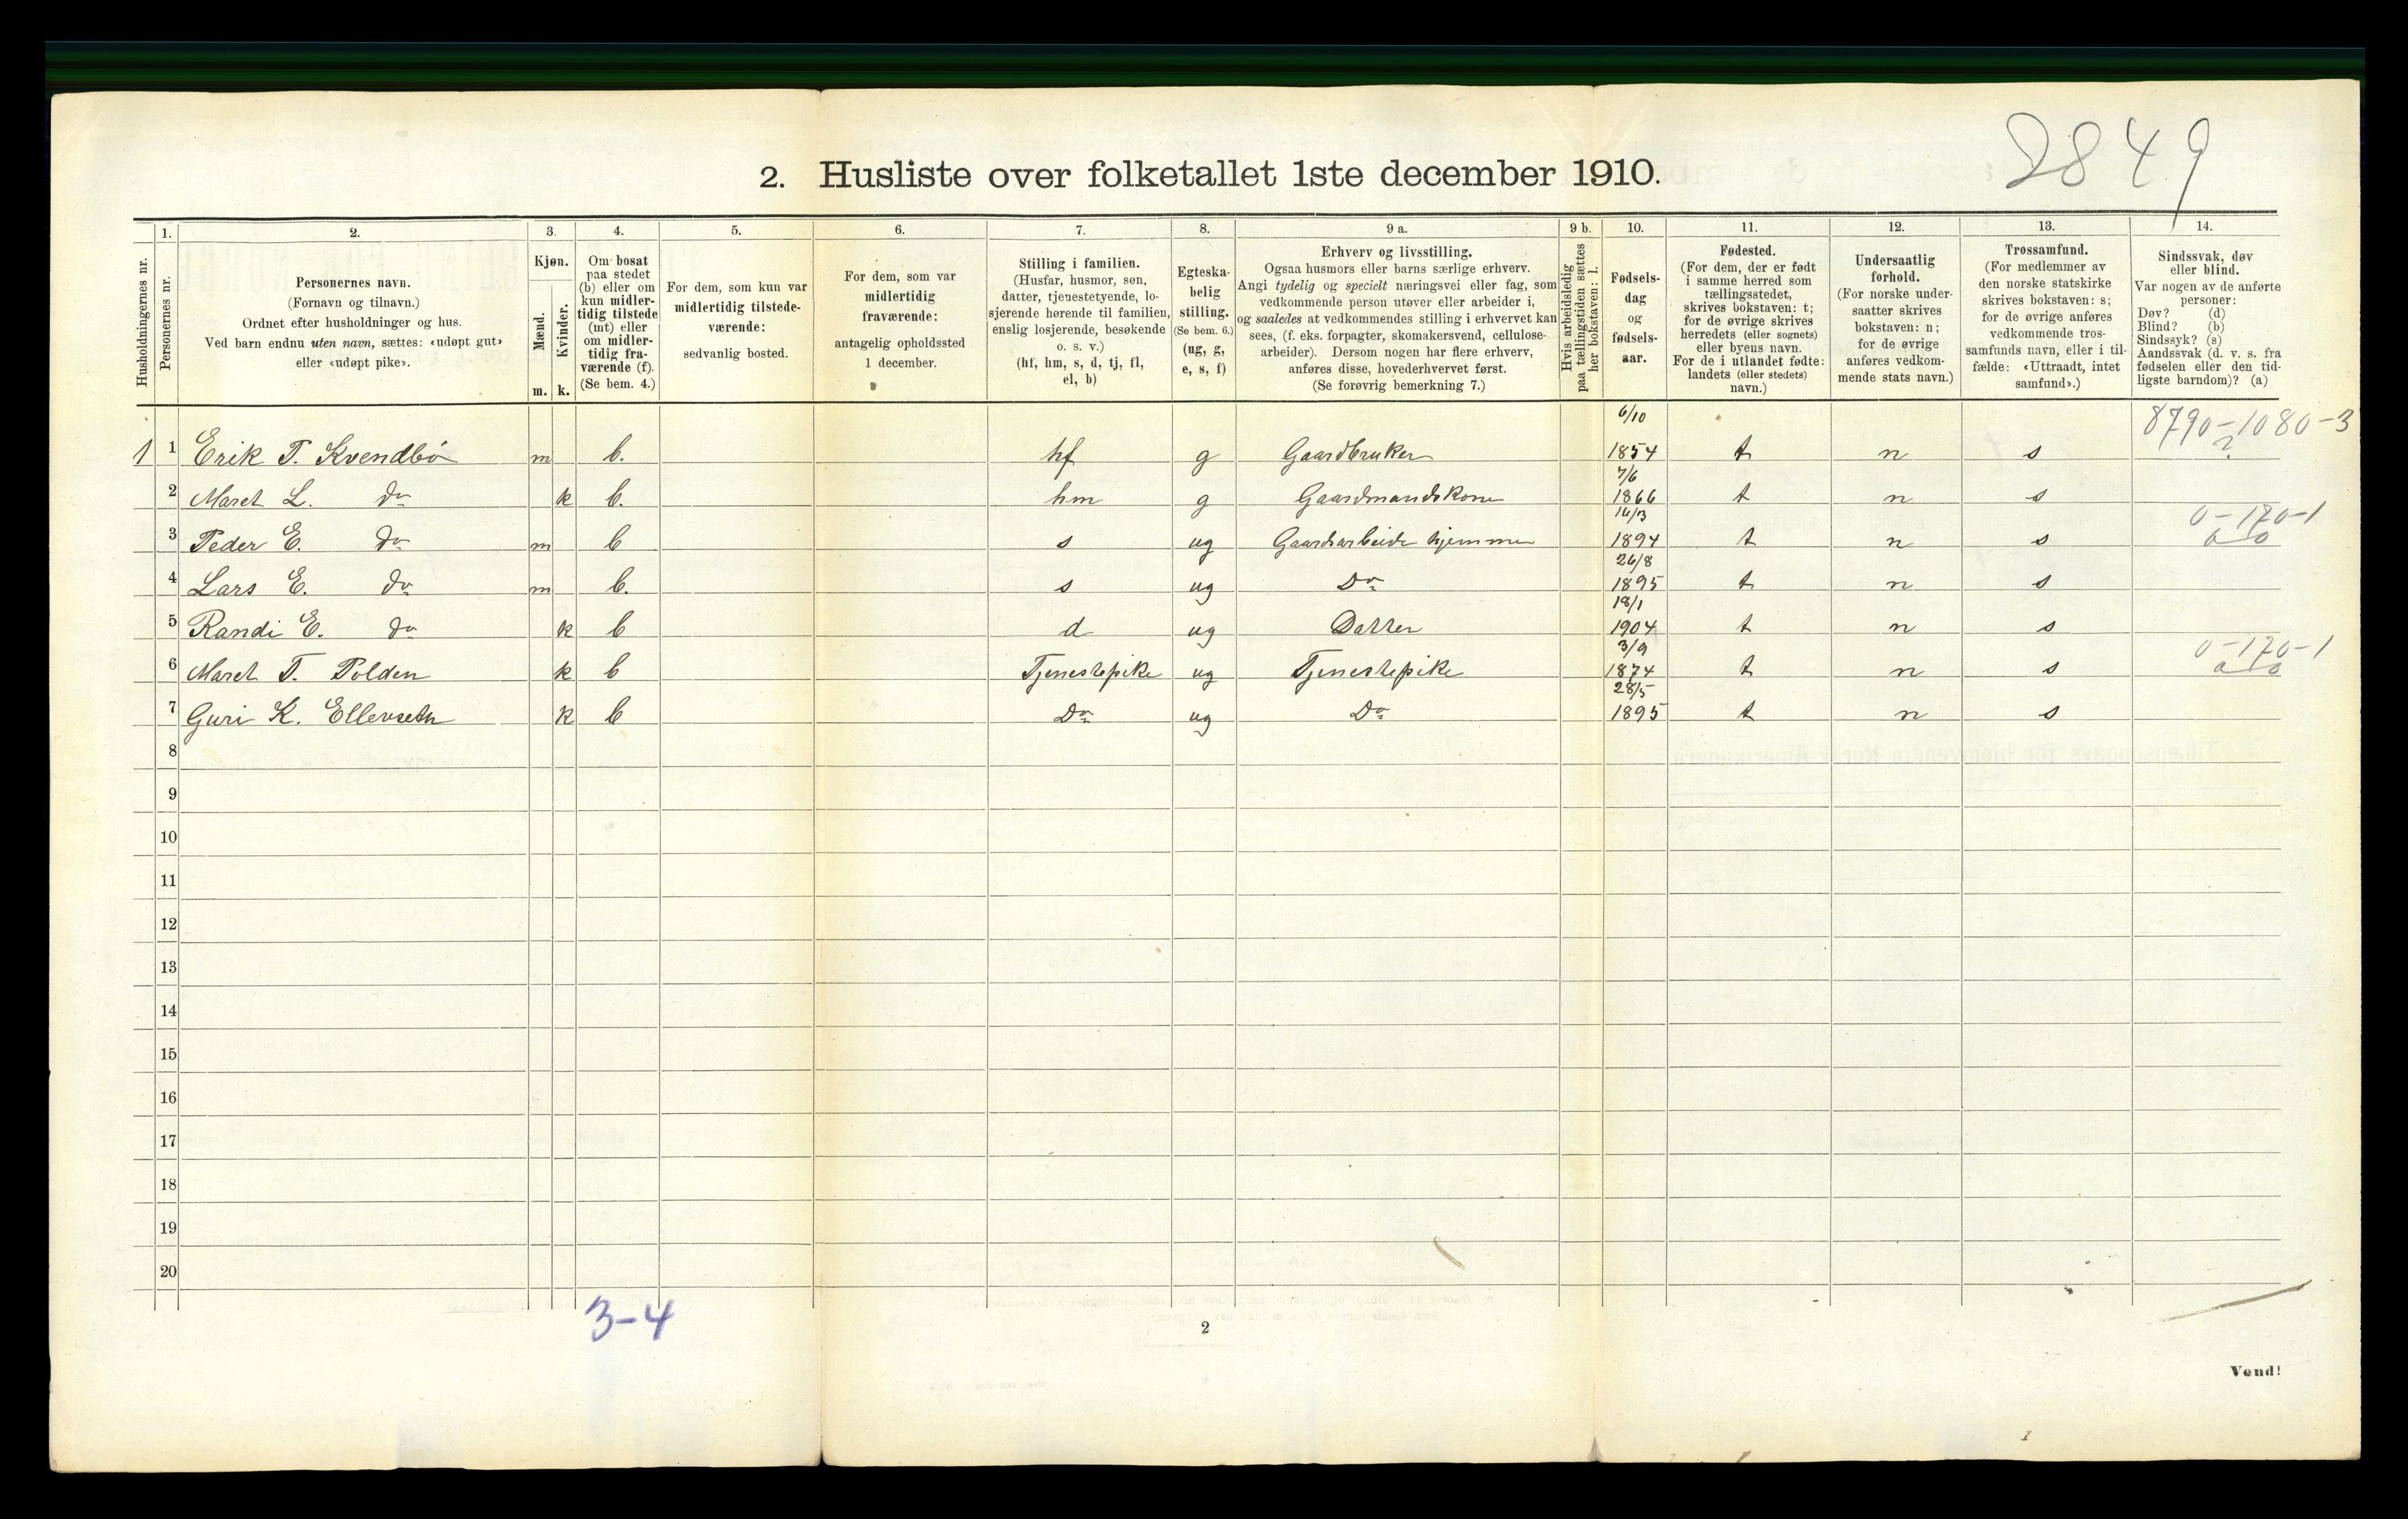 2849
2. Husliste over folketallet 1ste december 1910.
Husholdningernes nr.
1.
Personernes nr.
2.
Personernes navn.
(Fornavn og tilnavn.)
Ordnet efter husholdninger og hus.
Ved barn endnu uten navn, sættes: «udøpt gut»
eller «udøpt pike».
3.
Kjøn.
Mænd.
Kvinder.
m. k.
4.
Om bosat
paa stedet
(b) eller om
kun midler-
tidig tilstede
(mt) eller
om midler-
tidig fra-
værende (f).
(Se bem. 4.)
5.
For dem, som kun var
midlertidig tilstede-
værende:
sedvanlig bosted.
6.
For dem, som var
midlertidig
fraværende:
antagelig opholdssted
1 december.
7.
Stilling i familien.
(Husfar, husmor, søn,
datter, tjenestetyende, lo-
sjerende hørende til familien,
enslig losjerende, besøkende
o. s. v.)
(hf, hm, s, d, tj, fl,
el, b)
8.
Egteska-
belig
stilling.
(Se bem. 6.)
(ug, g,
e, s, f)
9 a.
Erhverv og livsstilling.
Ogsaa husmors eller barns særlige erhverv.
Angi tydelig og specielt næringsvei eller fag, som
vedkommende person utøver eller arbeider i,
og saaledes at vedkommendes stilling i erhvervet kan
sees, (f. eks. forpagter, skomakersvend, cellulose-
arbeider). Dersom nogen har flere erhverv,
anføres disse, hovederhvervet først.
(Se forøvrig bemerkning 7.)
9 b.
Hvis arbeidsledig
paa tællingstiden sættes
her bokstaven: l.
10.
Fødsels-
dag
og
fødsels-
aar.
11.
Fødested.
(For dem, der er født
i samme herred som
tællingsstedet,
skrives bokstaven: t;
for de øvrige skrives
herredets (eller sognets)
eller byens navn.
For de i utlandet fødte:
landets (eller stedets)
navn.)
12.
Undersaatlig
forhold.
(For norske under-
saatter skrives
bokstaven: n;
for de øvrige
anføres vedkom-
mende stats navn.)
13.
Trossamfund.
(For medlemmer av
den norske statskirke
skrives bokstaven: s;
for de øvrige anføres
vedkommende tros-
samfunds navn, eller i til-
fælde: «Uttraadt, intet
samfund».)
14.
Sindssvak, døv
eller blind.
Var nogen av de anførte
personer:
Døv? (d)
Blind? (b)
Sindssyk? (s)
Aandssvak (d. v. s. fra
fødselen eller den tid-
ligste barndom)? (a)
6/10 8790-1080-3
1 1 Erik T. Kvendbø m b. hf g Gaardbruker 1854 t n s ?
7/6
2 Maret L. do k b. hm g Gaardmandskone 1866 t n s
0-170-1
3 Peder E. do m b s ug Gaardsarbeide hjemme 1894 t n s 0 0
26/8
4 Lars E. do m b. s ug Do 1895 t n s
18/1
5 Randi E. do k b d ug Datter 1904 t n s
3/9 0-170-1
6 Maret T. Polden k b Tjenestepike ug Tjenestepike 1874 t n s 0 0
28/5
7 Guri K. Ellevseth k b Do ug Do 1895 t n s
8
9
10
11
12
13
14
15
16
17
18
19
20
3-4
2
Vend!